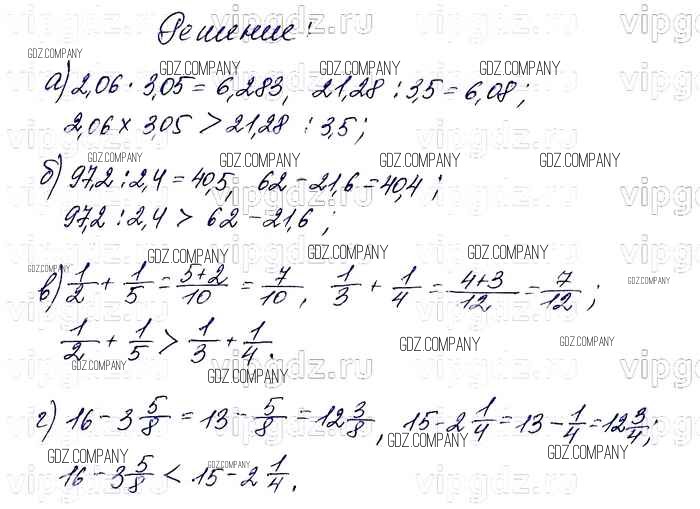 Решение:
а) 2,06 · 3,05 = 6,283, 21,28 : 3,5 = 6,08;
2,06 × 3,05 > 21,28 : 3,5;
б) 97,2 : 2,4 = 40,5, 62 - 21,6 = 40,4;
97,2 : 2,4 > 62 - 21,6;
в) 1/2 + 1/5 = 5+2/10 = 7/10, 1/3 + 1/4 = 4+3/12 = 7/12;
1/2 + 1/5 > 1/3 + 1/4.
г) 16 - 3 5/8 = 13 - 5/8 = 12 3/8, 15 - 2 1/4 = 13 - 1/4 = 12 3/4;
16 - 3 5/8 < 15 - 2 1/4.
GDZ.COMPANY
vipgdz.ru